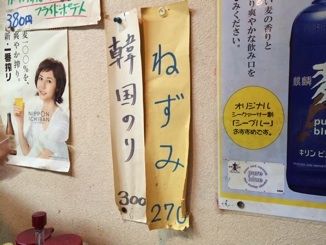 フライドポテト
380円
麦一〇〇%を、
爽やか搾り。
新・一番搾り
NIPPON
ICHIBAN
韓国のり
300
ねずみ
270
麦の香りと
爽やかな飲み口を
ください。
オリジナル
シークヮーサー割
「シーブルー」
おすすめです。
麒麟
麦
pure
blue
キリンビ
pure
blue